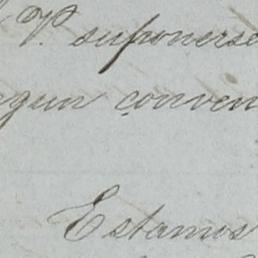 V. suponerse
egun conven
Estamos